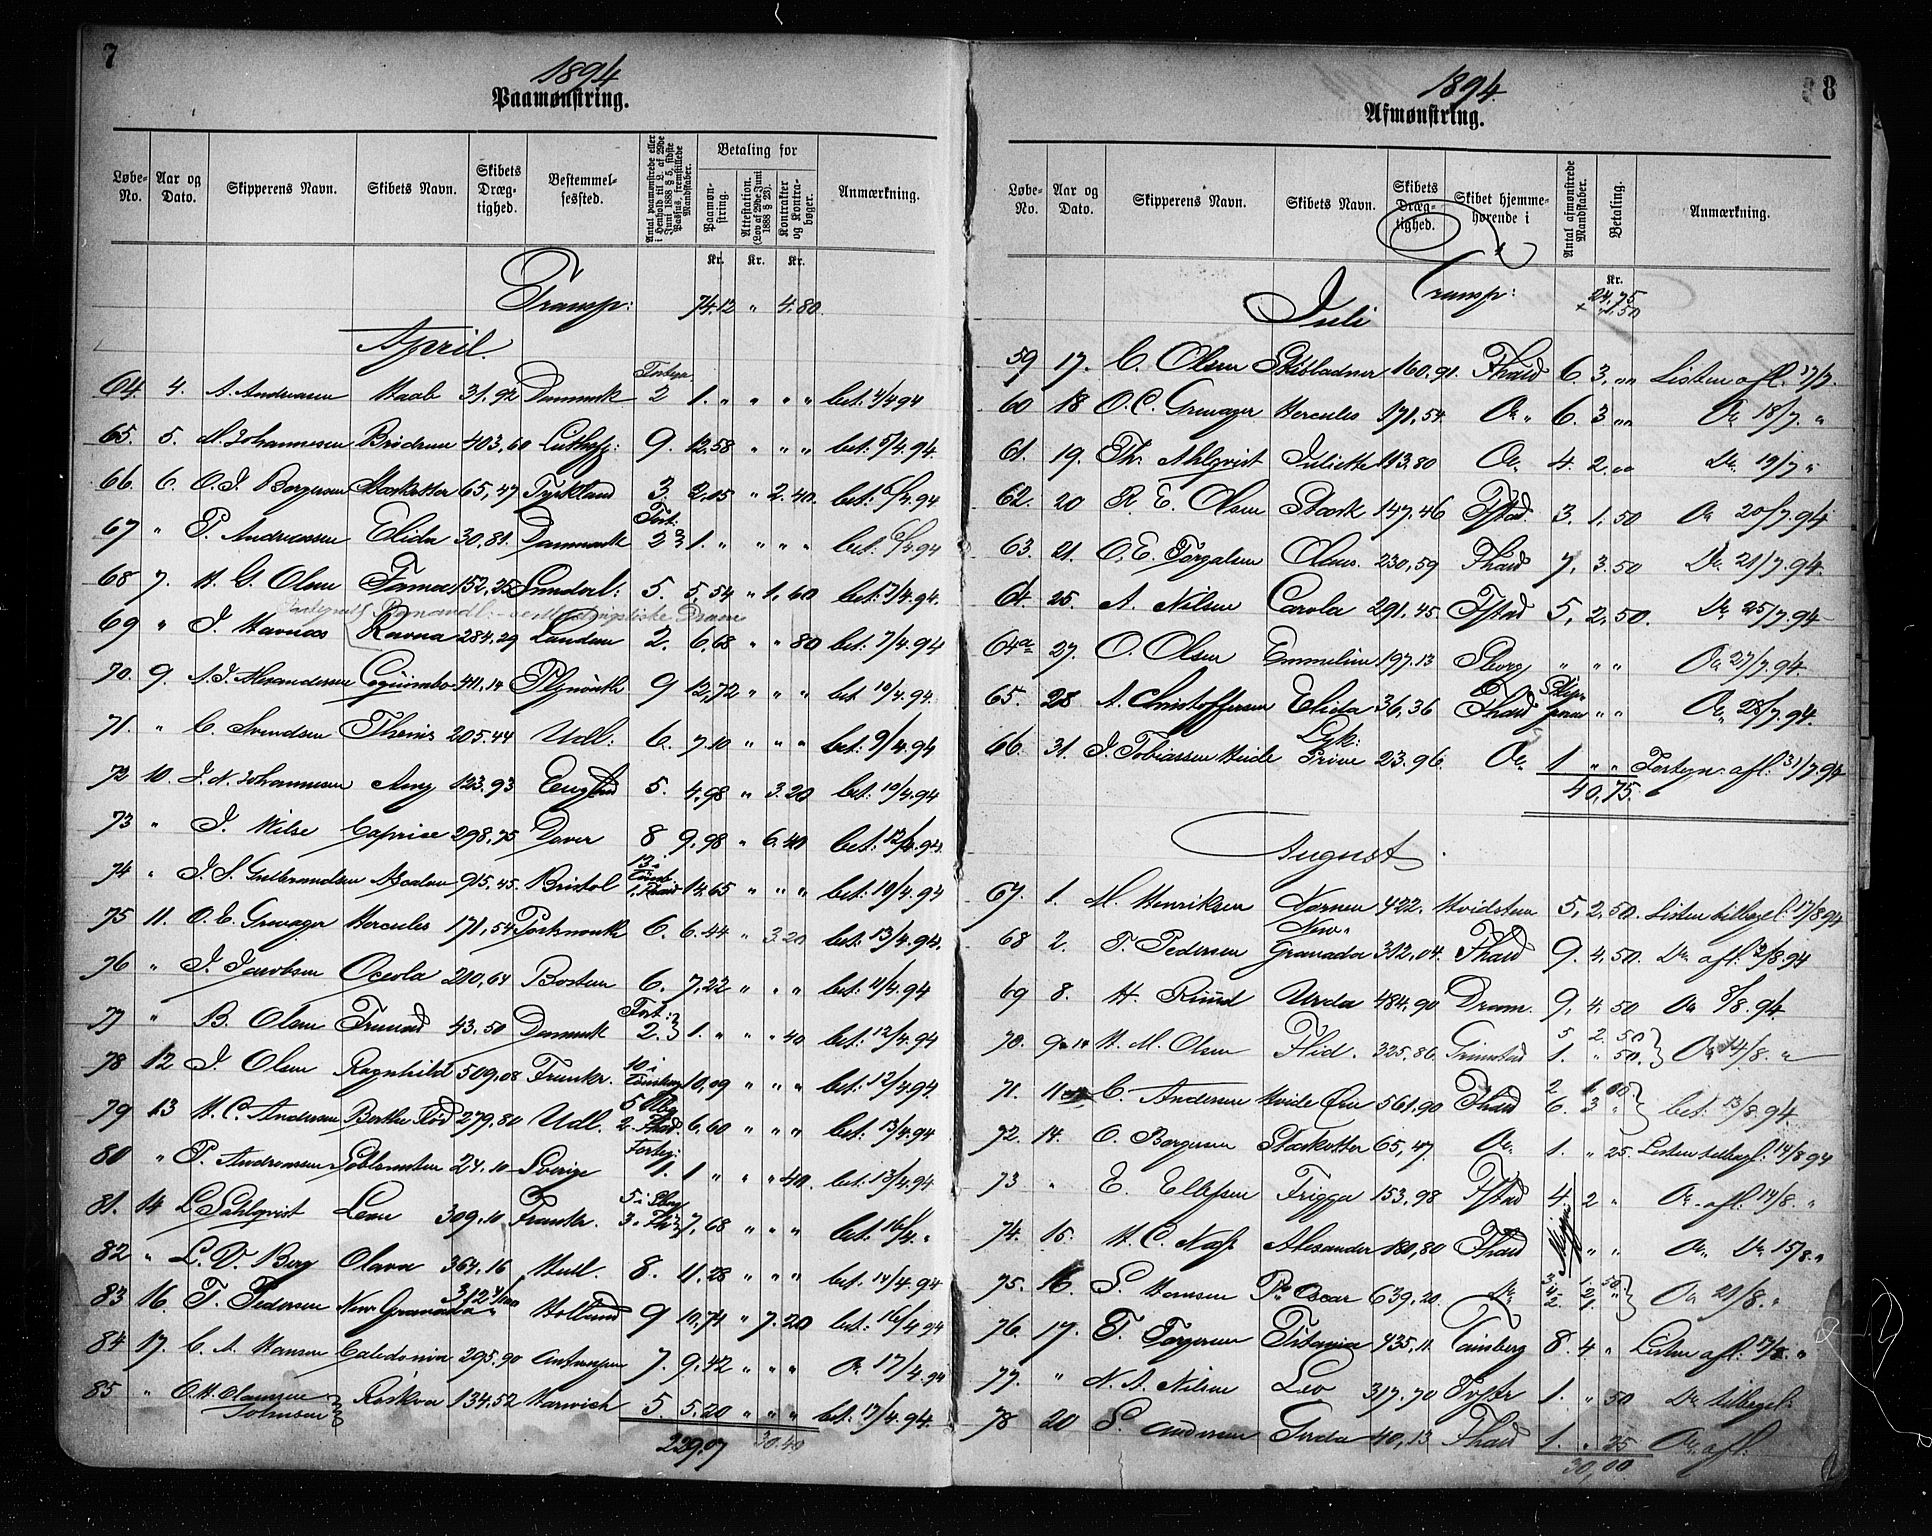 7
1894
Paamønstring.
Løbe-No. Aar og Dato. Skipperens Navn. Skibets Navn. Skibets Dræg-tighed. Bestemmel-sessted. Antal paamønstrede eller i Henhold til L. af 29de Juni 1888 § 5, sidste Passus, fremstillede Mandskaber. Betaling for Paamøn-string. Attestation. (Lov af 29de Juni 1888 § 23). Kontrakter og Kontra-bøger. Anmærkning.
Kr. Kr. Kr.
Transp: 74.12 " 4.80
April
64. 4. A. Andreasen Haab 31.92 Danmark 2 1. " " " " bet: 4/4 94
65. 5. M. Johannesen Brødrene 403,60 9. 12,58 " " " bet: 5/4.94
66. 6. O. J. Borgersen Stærkotter 65,47 Tyskland 3. 2,15 " 2.40. bet: 6/4.94
67 " P. Andreassen Elida 30,81. Danmark 2 1. " " " " bet: 6/4.94
68 7. H. G. Olsen Fama 152,25 Sunderl: 5. 5,54 " 1,60 bet: 7/4.94.
69 " J. Havnaas Ravna 284.29 London 2. 6,68 " " 80 bet: 7/4.94
70. 9. A. J. Alexandersen Coquimbo 411,14 Plymouth 9 12,72 " " " bet 10/4.94.
71. " C. Svendsen Themis 205.44 Udl: 6. 7.10 " " " bet: 9/4.94
72 10. J. N. Johannesen Amy 123.93 England 5. 4,98 " 3.20 bet: 10/4.94
73 " J. Wilse Caprice 298,75 Dover 8 9,98 " 6.40 bet: 12/4.94.
74 " J. S. Gulbrandsen Ascalon 915.45 Bristol 13 i 14,65 " " " bet: 19/4.94
75 11. O. C. Grevager Hercules 171,54 Portsmouth 6. 6.44 " 3.20 bet: 13/4.94.
76 " J. Jacobsen Oceola 210,64 Boston 6. 7,22 " " " bet: 11/4.94
77 " B. Olsen 43,50 Danmark 2. 1. " " 40 bet: 12/4.94
78 12 J. Olsen Ragnhild 509,08 Frankr. 10 i Tønsberg 10,09 " " " bet: 12/4.94
79 13 H. C. Andersen Berthe 279,80 Udl. 6,60 " " " bet: 13/4.94
80 " P. Andreasen 24.10 Sverige 1. 1 " " 40. bet: 13/4.94
81. 14 L. Dahlqvist Leon 309,10 Frankr. 5 i 3. 7,68 " " " bet: 16/4. "
82 " L. D. Berg Olava 364,16 Hull. 8. 11,28 " " " bet: 14/4.94
83 16. T. Pedersen New Granada 312 4/100 Holland 9 10,74 " 7.20 bet: 16/4.94
84 17. C. A. Hansen Caledonia 295.90 Antwerpen 7. 9,42 " " " Do 17/4.94
85 " O. H. Olaussen Johnsen Røskva 134.52 Harwich 5. 5.20 " " " bet: 17/4.94.
229.07 30.40
8
1894.
Afmønstring.
Løbe-No. Aar og Dato. Skipperens Navn. Skibets Navn. Skibets Dræg-tighed. Skibet hjemme-hørende i Antal afmønstrede Mandskaber. Betaling. Anmærkning.
Kr.
Transp: 24,75
+ 1,50
Juli
59 17. C. Olsen Skibladner 160.91. Fhald 6. 3, " " Listen afl. 17/7.
60 18 O. C. Grevager Hercules 171,54 Do " 6. 3 " " Do 18/7. "
61. 19. Th. Ahlqvist Juliette 113.80 Do 4. 2, " " Do. 19/7 "
62. 20 R. E. Olsen Stærk 147,46 Fstad 3. 1,50 Do 20/7.94
63. 21. O. E. Torgalsen Olaus 230,59 Fhald 7, 3.50 Do 21/7.94.
64. 25. A. Nilsen Carola 291.45. Fstad 5, 2,50. Do 25/7.94
64a 27. O. Olsen Emmeline 197.13 Sborg " " " Do 27/7.94.
65. 28 A. Christoffersen Elida 36,36 Fhald " " Do 28/7.94.
66. 31. J. Tobiassen Hvide Lyk: Prøve 23.96. Do 1 " " Fortegn. afl. 31/7.94
40,75.
August
67. 1. M. Henriksen Nornen 422. Hvidsten 5, 2,50. Listen tilbagel. 17/8 94
68 2. T. Pedersen New Granada 312,04. Fhald 9. 4,50. Do afl. 2/8.94
69 8. H. Ruud Urda 484,90 Dram. 9, 4,50 Do 8/8.94
70. 9 H. M. Olsen Flid. 325.86. Grimstad 5 2.50 1. " 50. Do 14/8. "
71. 11 C. Andersen Hvide Ørn 561.90 Fhald 2 1 00. 6. 3 " bet. 13/8.94.
72. 14. O. Borgersen Stærkotter 65,47. Do 1. " 25. Listen tilbagl. 14/8 94
73 " E. Ellefsen Frigga 153.98 Fstad 4. 2 " Do. afl. 14/8. "
74. 15. H. C. Næss Alexander 180,80 Fhald " " Do Do 15/8. "
75. 16. S. Hansen Ps Oscar 639.20. Do Do 21/8. "
76. 17. T. Torgersen Titania 435.11 Tønsberg 8. 4 " Listen afl. 17/8. "
77. " N. A. Nilsen Leo 317.70 1. " 50 Do tilbagel:
78 20 S. Andersen Gerda 40,13 Fhald 1. . 25 Do. afl:
30,00